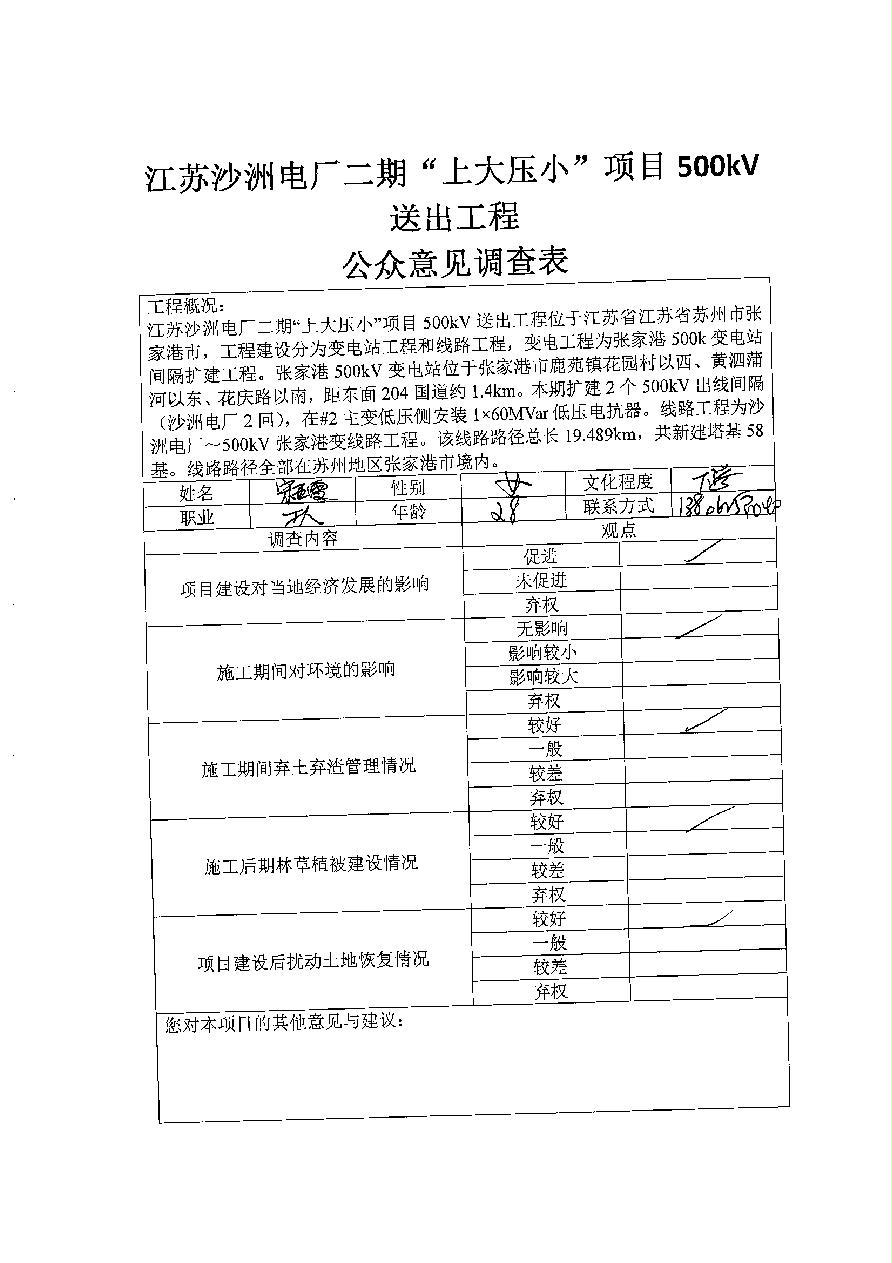 江苏沙洲电厂二期“上大压小”项目 500kV
送出工程
公众意见调查表
工程概况：
江苏沙洲电厂二期“上大压小”项目 500kV 送出工程位于江苏省江苏省苏州市张
家港市，工程建设分为变电站工程和线路工程，变电工程为张家港 500k 变电站
间隔扩建工程。张家港 500kV 变电站位于张家港市鹿苑镇花园村以西、黄泗蒲
河以东、花庆路以南，距东面 204 国道约 1.4km。本期扩建 2 个 500kV 出线间隔
（沙洲电厂 2 回），在#2 主变低压侧安装 1×60MVar 低压电抗器。线路工程为沙
洲电厂～500kV 张家港变线路工程。该线路路径总长 19.489km，共新建塔基 58
基。线路路径全部在苏州地区张家港市境内。
姓名 性别 女 文化程度
职业 工人 年龄 28 联系方式
调查内容 观点
项目建设对当地经济发展的影响
促进 ✓
未促进
弃权
施工期间对环境的影响
无影响 ✓
影响较小
影响较大
弃权
施工期间弃土弃渣管理情况
较好 ✓
一般
较差
弃权
施工后期林草植被建设情况
较好 ✓
一般
较差
弃权
项目建设后扰动土地恢复情况
较好 ✓
一般
较差
弃权
您对本项目的其他意见与建议：